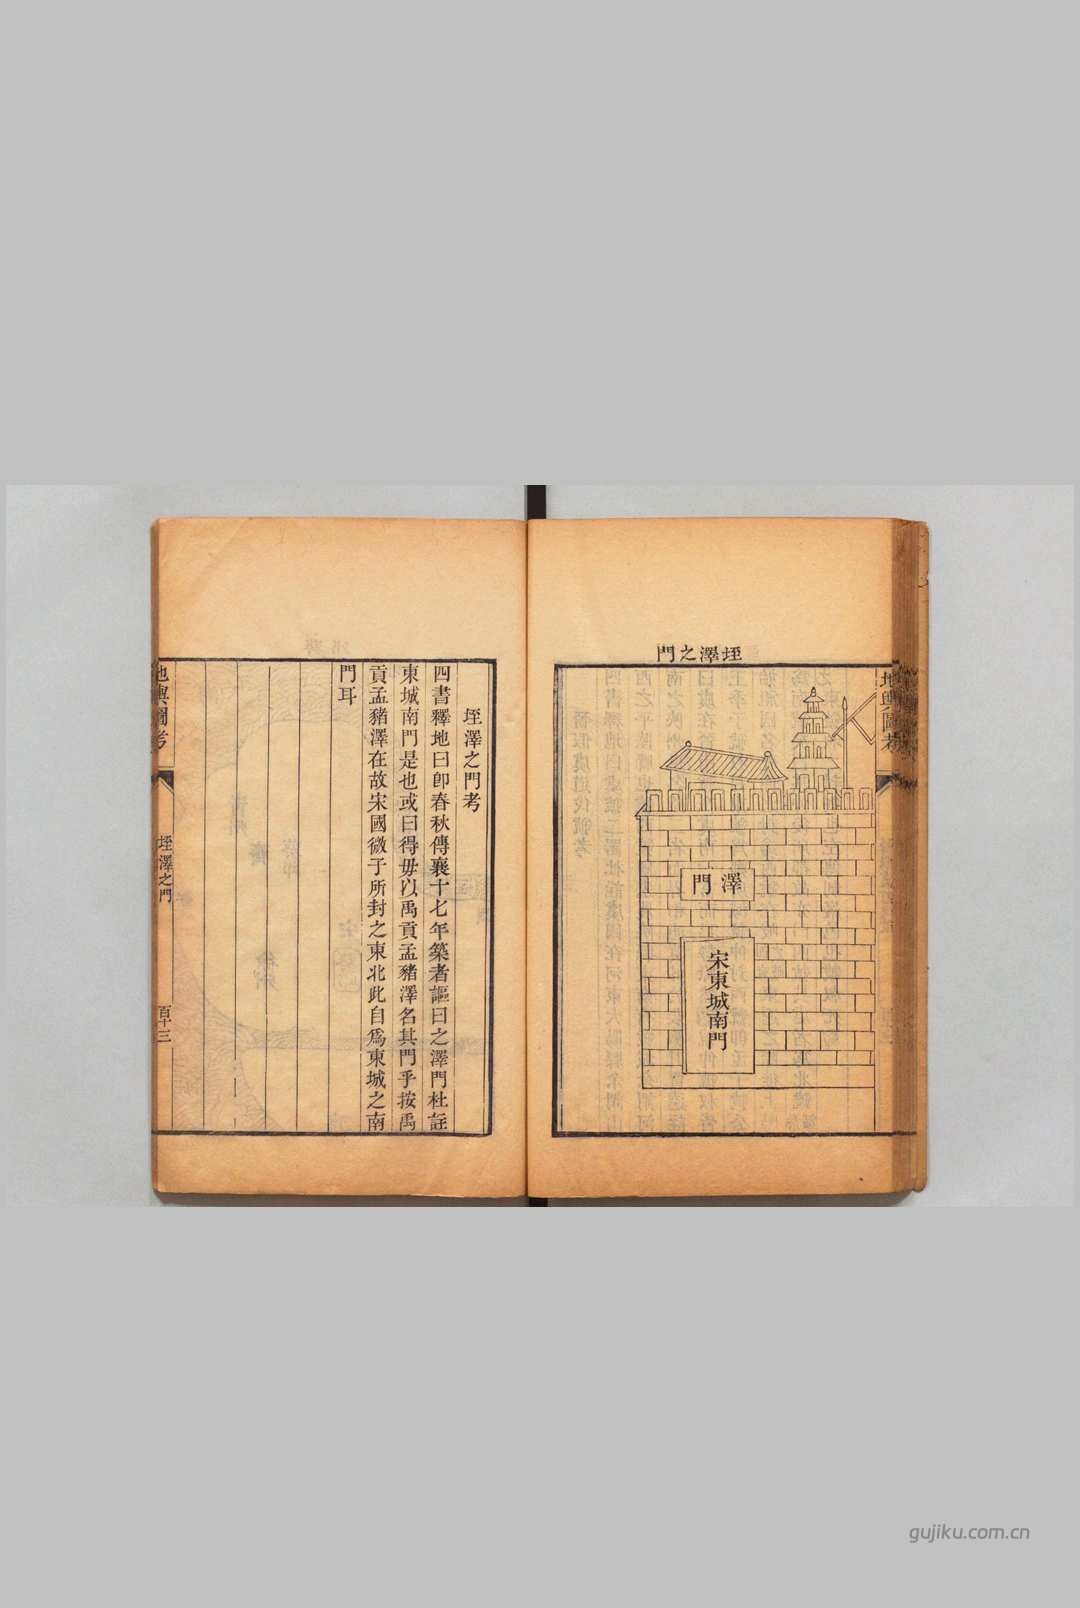 垤澤之門
澤門
宋東城南門
地輿圖考
垤澤之門考
四書釋地曰卽春秋傳襄十七年築者謳曰之澤門杜註
東城南門是也或曰得毋以禹貢孟豬澤名其門乎按禹
貢孟豬澤在故宋國微子所封之東北此自爲東城之南
門耳
地輿圖考
垤澤之門
百十三
gujiku.com.cn